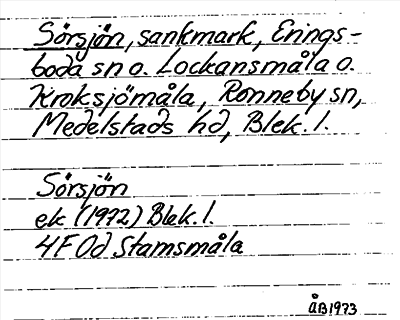 Sörsjön, sankmark, Erings-
boda sn o. Lockansmåla o.
Kroksjömåla, Ronneby sn,
Medelstads hd, Blek. l.
Sörsjön
ek (1972) Blek. l.
4F 0d Stamsmåla
ÅB1973